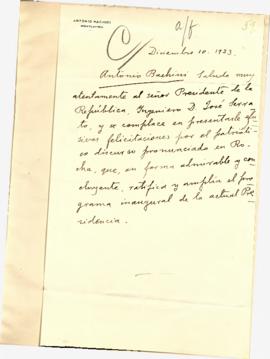 ANTONIO BACHINI
MONTEVIDEO
a/f
Diciembre 10. 1923.
Antonio Bachini saluda muy
atentamente al señor Presidente de la
República, Ingeniero D. José Serra-
to, y se complace en presentarle efu-
sivas felicitaciones por el patrióti-
co discurso pronunciado en Ro-
cha, que, en forma admirable y con-
cluyente, ratifica y amplía el pro-
grama inaugural de la actual Pre-
sidencia.